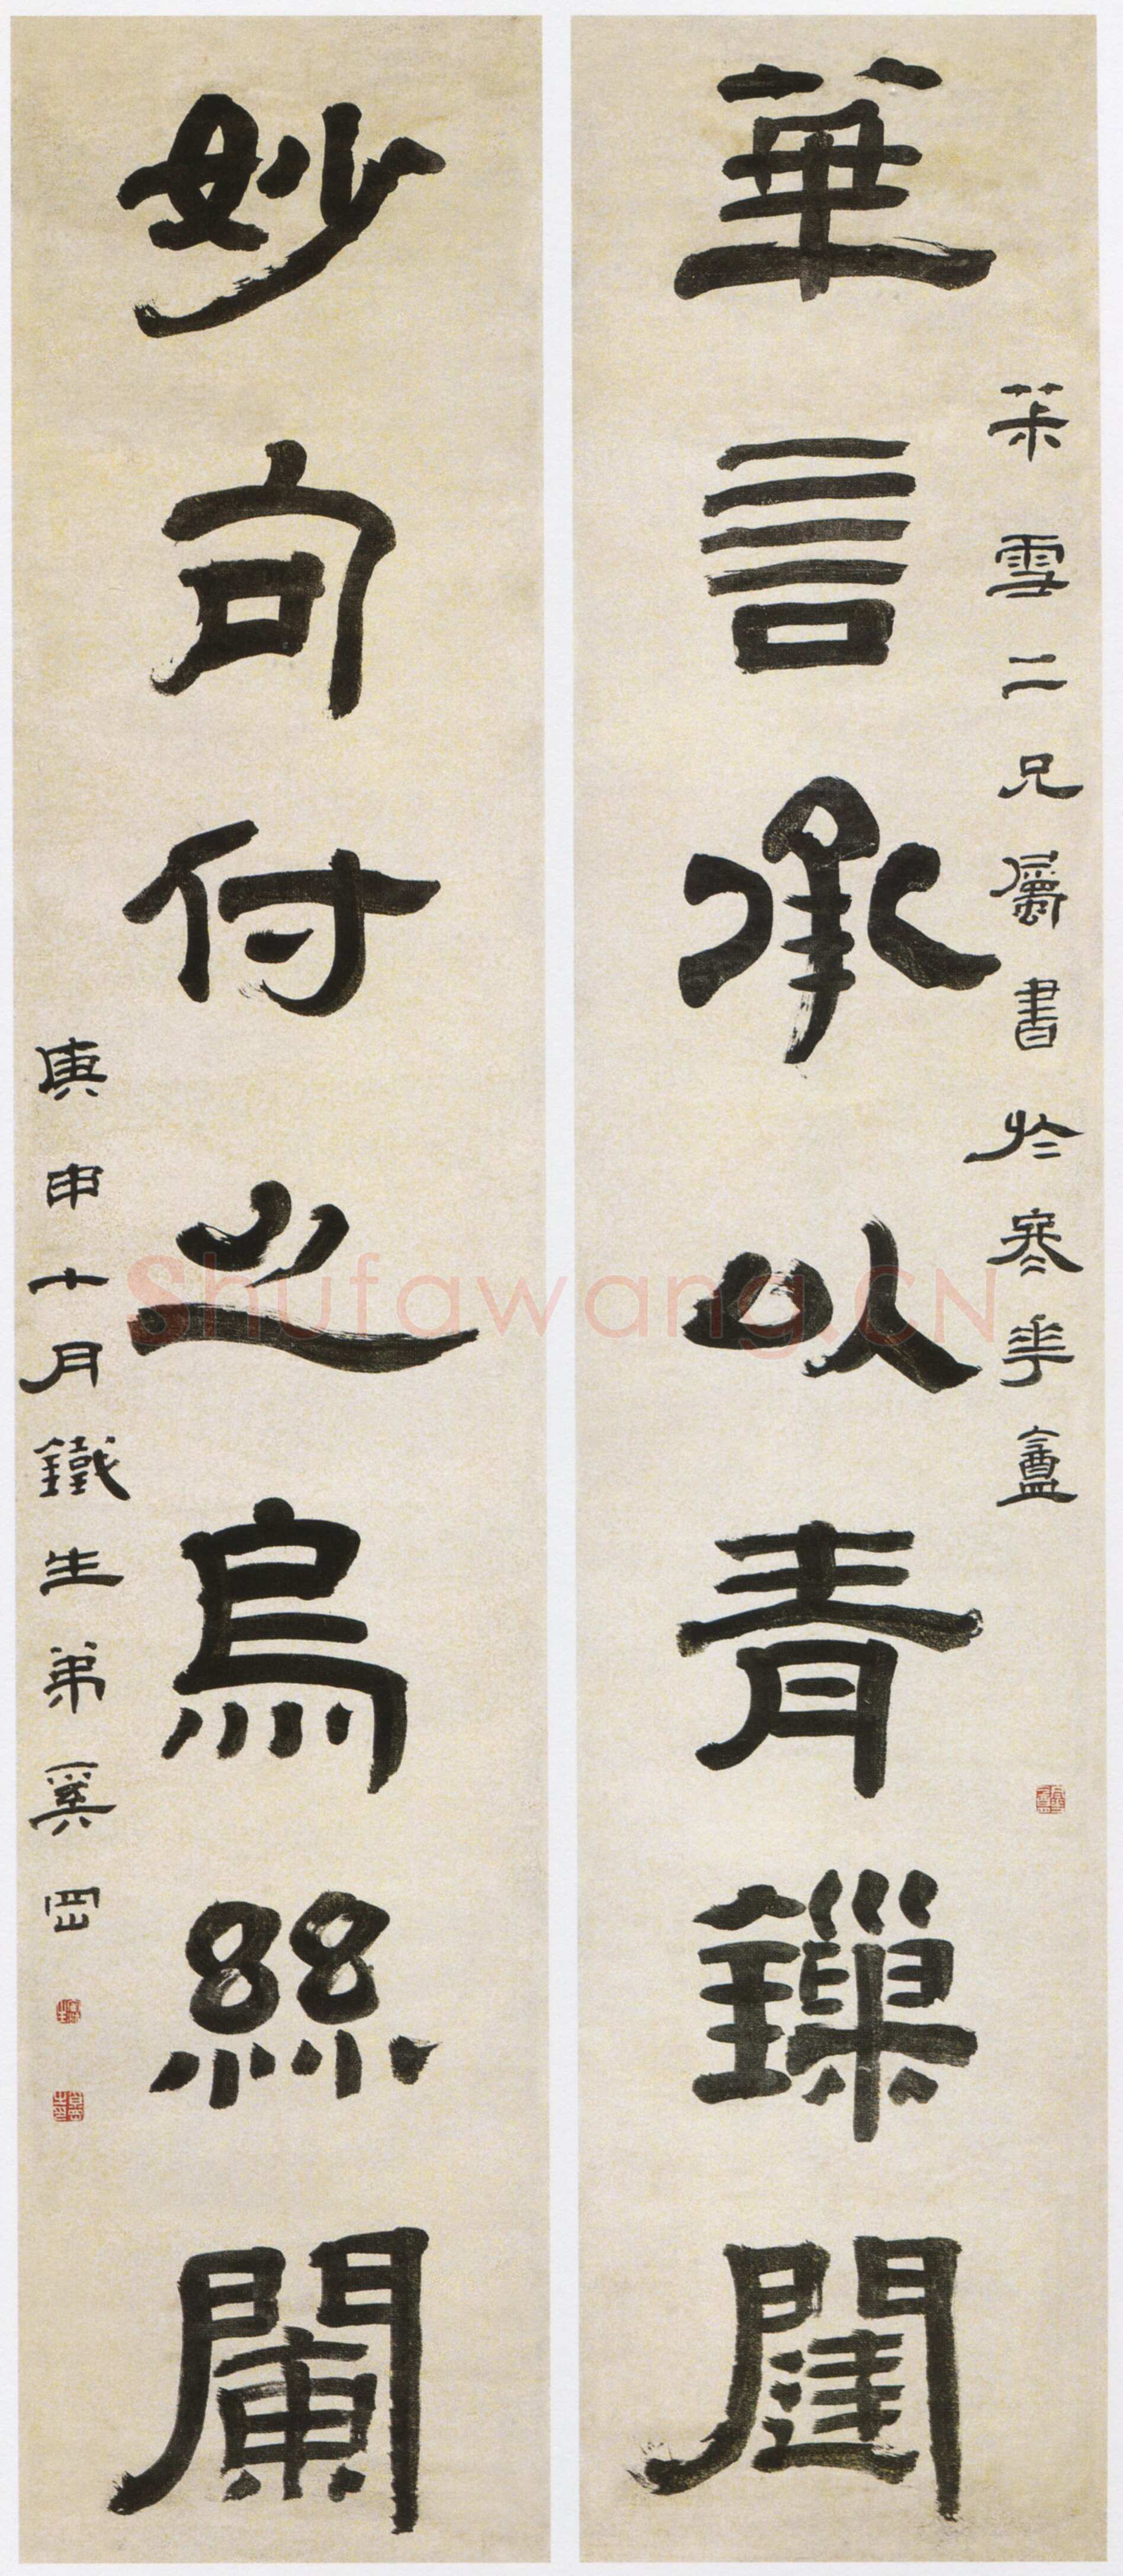 茮雪二兄屬書於寒華盦
華言承以青鏁闥
妙句付之烏絲闌
庚申十月鐵生弟奚岡
Shufawang.CN